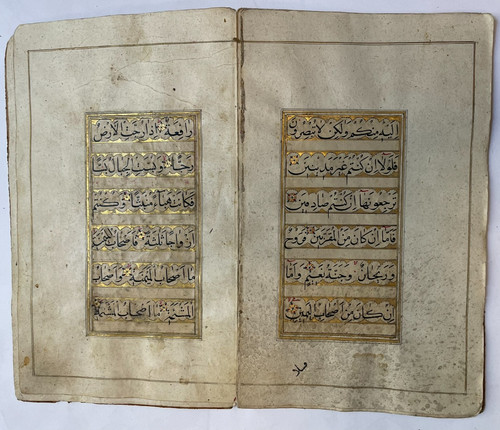 اليه منكم ولكن لا تبصرون
فلولا ان كنتم غير مدينين
ترجعونها ان كنتم صادقين
فاما ان كان من المقربين فروح
وريحان وجنة نعيم واما
ان كان من اصحاب اليمين
رافعة اذا رجت الارض
رجا وبست الجبال بسا
فكانت هباء منبثا وكنتم
ازواجا ثلثة فاصحاب الميمنة
ما اصحاب الميمنة واصحاب
المشئمة ما اصحاب المشئمة